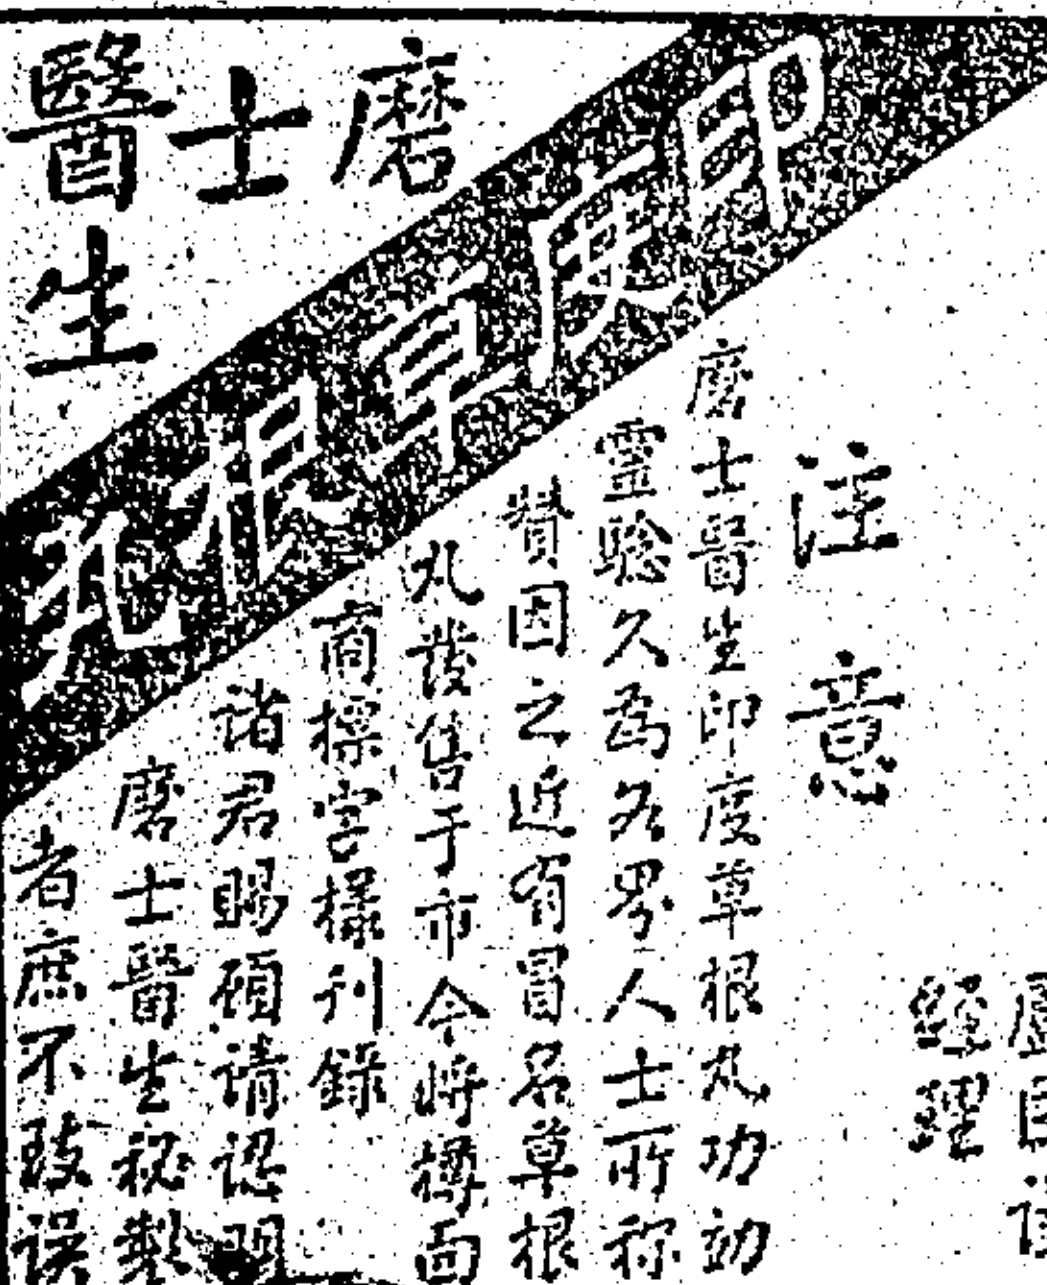 磨士醫生
印度草根丸
經理
注意
磨士醫生印度草根丸功効
靈驗久為各界人士所称
贊因之近有冒名草根
丸發售于市今將樽面
商標字樣刊錄
諸君賜顧請認明
磨士醫生秘製
者庶不致误